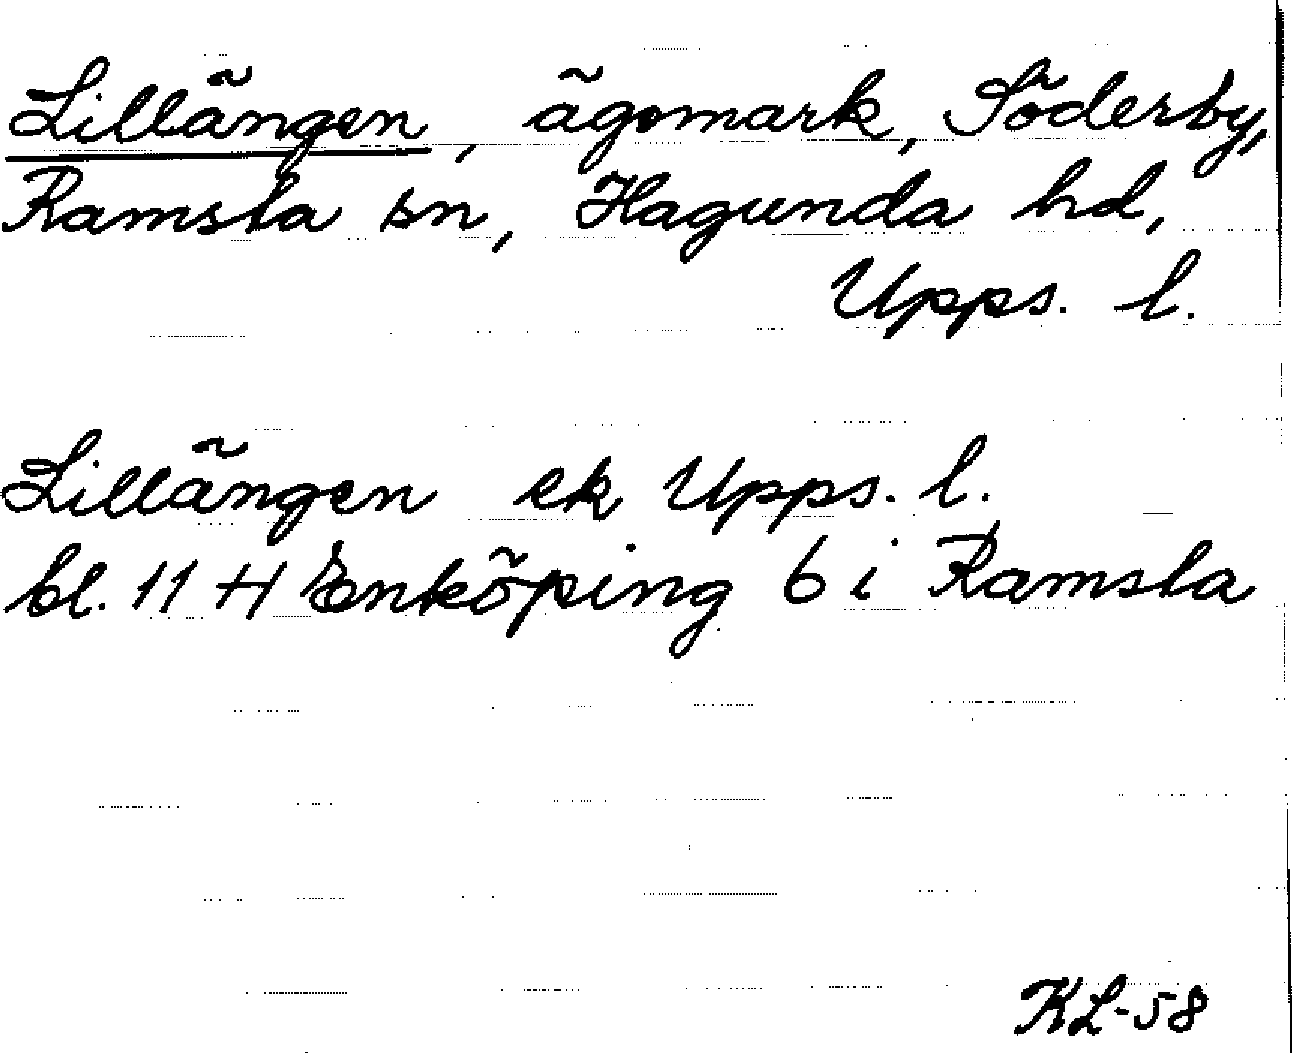 Lillängen, ägomark, Söderby,
Ramsta sn, Hagunda hd,
Upps. l.
Lillängen ek Upps. l.
bl. 11 H Enköping 6 i Ramsta
KL-58